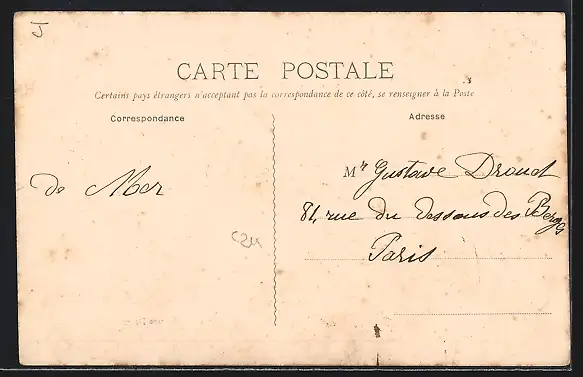 J
CARTE POSTALE
Certains pays étrangers n'acceptent pas la correspondance de ce côté, se renseigner à la Poste
Correspondance
Adresse
de Mer
Mr Gustave Drouet
81, rue du Dessous des Berges
Paris